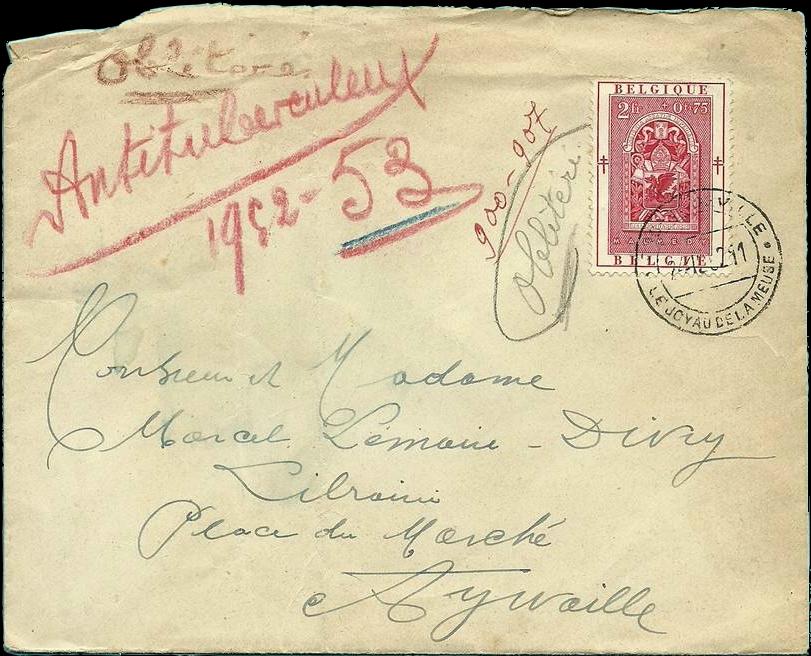 Oblitéré
Antituberculeux
1952-53
900-907
Oblitéré
BELGIQUE
2 fr + 0f.75
BELGIË
VILLE
LE JOYAU DE LA MEUSE
Monsieur et Madame
Marcel Lemaire-Divry
Libraire
Place du Marché
Aywaille